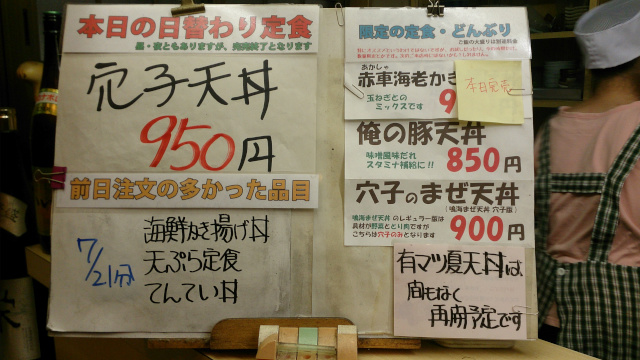 本日の日替わり定食
昼・夜ともありますが、完売終了となります
穴子天丼
950円
前日注文の多かった品目
7/21分
海鮮かき揚げ丼
天ぷら定食
てんてい丼
限定の定食・どんぶり
ご飯の大盛りは別途料金
あかしゃ
赤車海老かき
玉ねぎとの
ミックスです
9
本日完売
俺の豚天丼
味噌風味だれ
スタミナ補給に!!
850円
穴子のまぜ天丼
(鳴海まぜ天丼 穴子版)
鳴海まぜ天丼 のレギュラー版は
具材が野菜ととり肉ですが
こちらは穴子のみとなります
900円
有マツ夏天丼は
間もなく
再開予定です